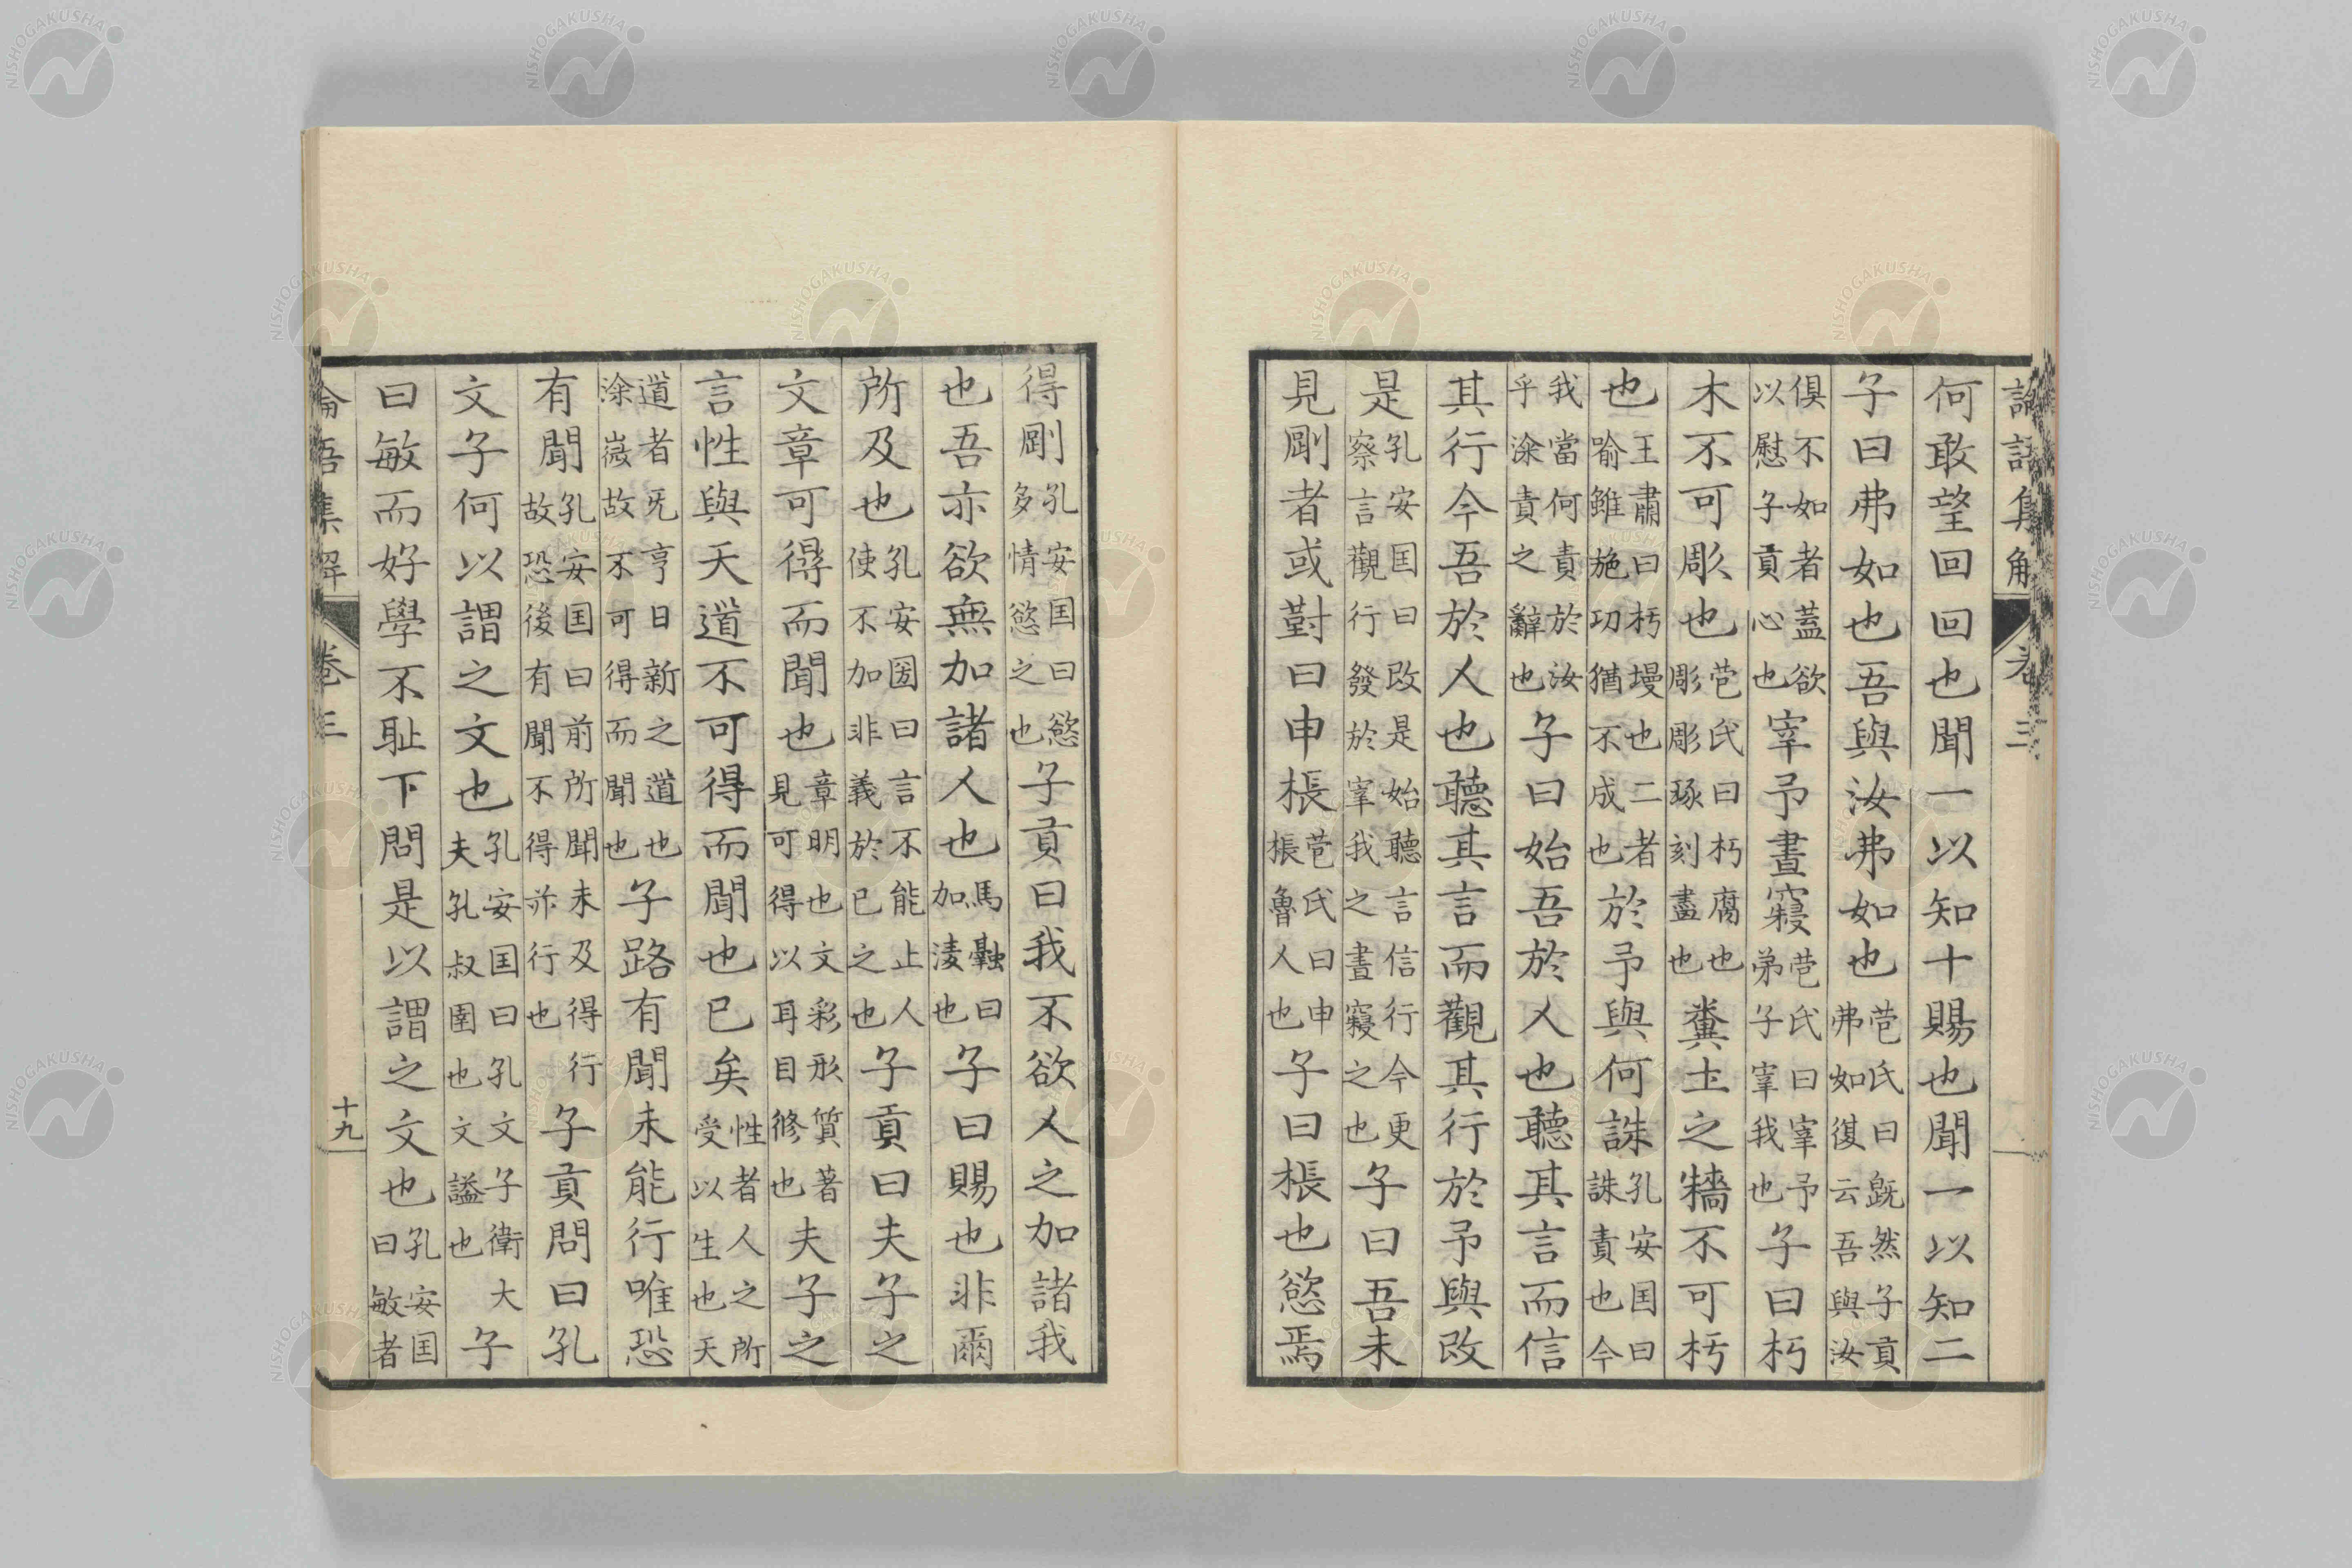 論語集解 卷三
何敢望回回也聞一以知十賜也聞一以知二
子曰弗如也吾與汝弗如也苞氏曰既然子貢弗如復云吾與汝
俱不如者蓋欲以慰子貢心也宰予晝寢苞氏曰宰予弟子宰我也子曰朽
木不可彫也苞氏曰朽腐也彫彫琢刻畫也糞土之牆不可杇
也王肅曰杇墁也二者喻雖施功猶不成也於予與何誅孔安国曰誅責也今
我當何責於汝乎深責之辭也子曰始吾於人也聽其言而信
其行今吾於人也聽其言而觀其行於予與改
是孔安国曰改是始聽言信行今更察言觀行發於宰我之晝寢之也子曰吾未
見剛者或對曰申棖苞氏曰申棖魯人也子曰棖也慾焉
得剛孔安国曰慾多情慾之也子貢曰我不欲人之加諸我
也吾亦欲無加諸人也馬融曰加凌也子曰賜也非爾
所及也孔安国曰言不能止人使不加非義於己之也子貢曰夫子之
文章可得而聞也章明也文彩形質著見可得以耳目修也夫子之
言性與天道不可得而聞也已矣性者人之所受以生也天
道者元亨日新之道也深微故不可得而聞也子路有聞未能行唯恐
有聞孔安国曰前所聞未及得行故恐後有聞不得並行也子貢問曰孔
文子何以謂之文也孔安国曰孔文子衛大夫孔叔圉也文謚也子
曰敏而好學不耻下問是以謂之文也孔安国曰敏者
論語集解 卷三 十九
NISHOGAKUSHA